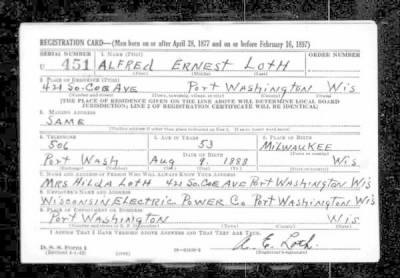 REGISTRATION CARD—(Men born on or after April 28, 1877 and on or before February 16, 1897)
SERIAL NUMBER 1. NAME (Print) ORDER NUMBER
U 451 ALFRED ERNEST LOTH
(First) (Middle) (Last)
2. PLACE OF RESIDENCE (Print)
421 SO. COE AVE PORT WASHINGTON WIS
(Number and street) (Town, township, village, or city) (County) (State)
[THE PLACE OF RESIDENCE GIVEN ON THE LINE ABOVE WILL DETERMINE LOCAL BOARD
JURISDICTION; LINE 2 OF REGISTRATION CERTIFICATE WILL BE IDENTICAL]
3. MAILING ADDRESS
SAME
[Mailing address if other than place indicated on line 2. If same insert word same]
4. TELEPHONE 5. AGE IN YEARS 6. PLACE OF BIRTH
506 53 MILWAUKEE
DATE OF BIRTH (Town or county)
PORT WASH AUG 9, 1888 WIS
(Exchange) (Number) (Mo.) (Day) (Yr.) (State or country)
7. NAME AND ADDRESS OF PERSON WHO WILL ALWAYS KNOW YOUR ADDRESS
MRS HILDA LOTH 421 SO. COE AVE PORT WASHINGTON WIS
8. EMPLOYER'S NAME AND ADDRESS
WISCONSIN ELECTRIC POWER CO PORT WASHINGTON WIS
9. PLACE OF EMPLOYMENT OR BUSINESS
PORT WASHINGTON WIS
(Number and street or R. F. D. number) (Town) (County) (State)
I AFFIRM THAT I HAVE VERIFIED ABOVE ANSWERS AND THAT THEY ARE TRUE.
D. S. S. Form 1
A. E. Loth